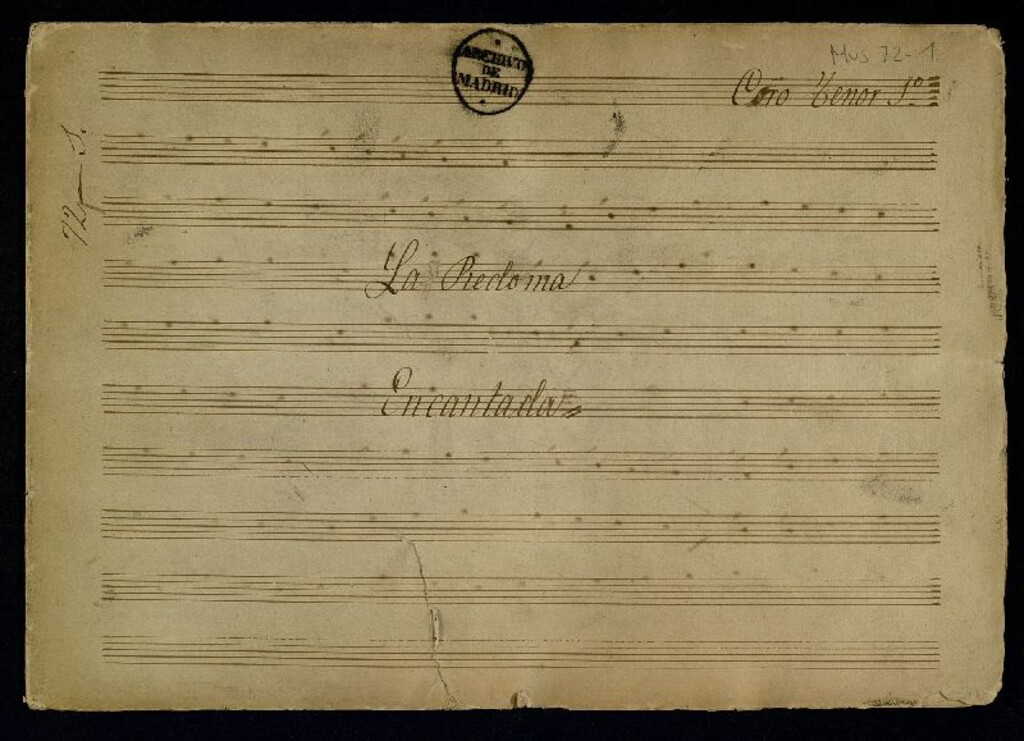 ARCHIVO
DE
MADRID
Mus 72-1
Coro Tenor 1º
72-1.
La Redoma
Encantada=